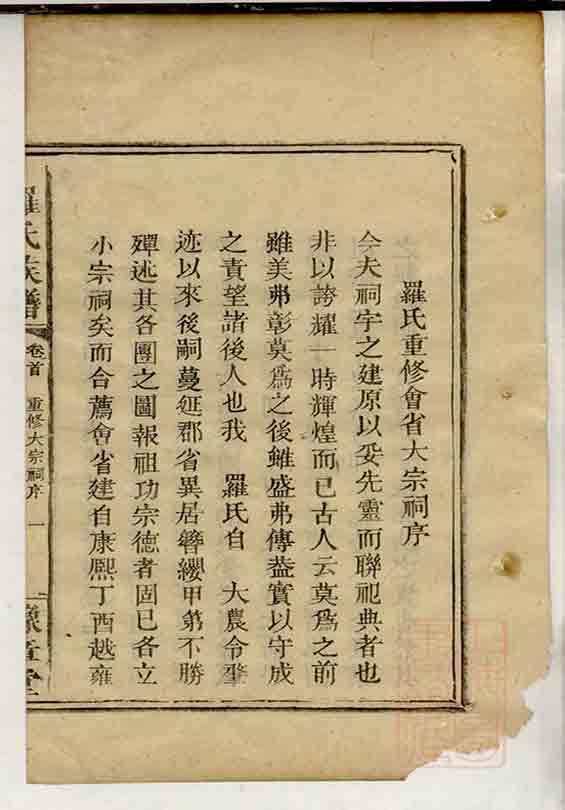 羅氏重修會省大宗祠序
今夫祠宇之建原以妥先靈而聯祀典者也
非以誇耀一時輝煌而已古人云莫爲之前
雖美弗彰莫爲之後雖盛弗傳葢實以守成
之責望諸後人也我 羅氏自 大農令肇
迹以來後嗣蔓延郡省異居簪纓甲第不勝
殫述其各團之圖報祖功宗德者固已各立
小宗祠矣而合薦會省建自康熙丁酉越雍
羅氏族譜 卷首 重修大宗祠序 一 豫章堂